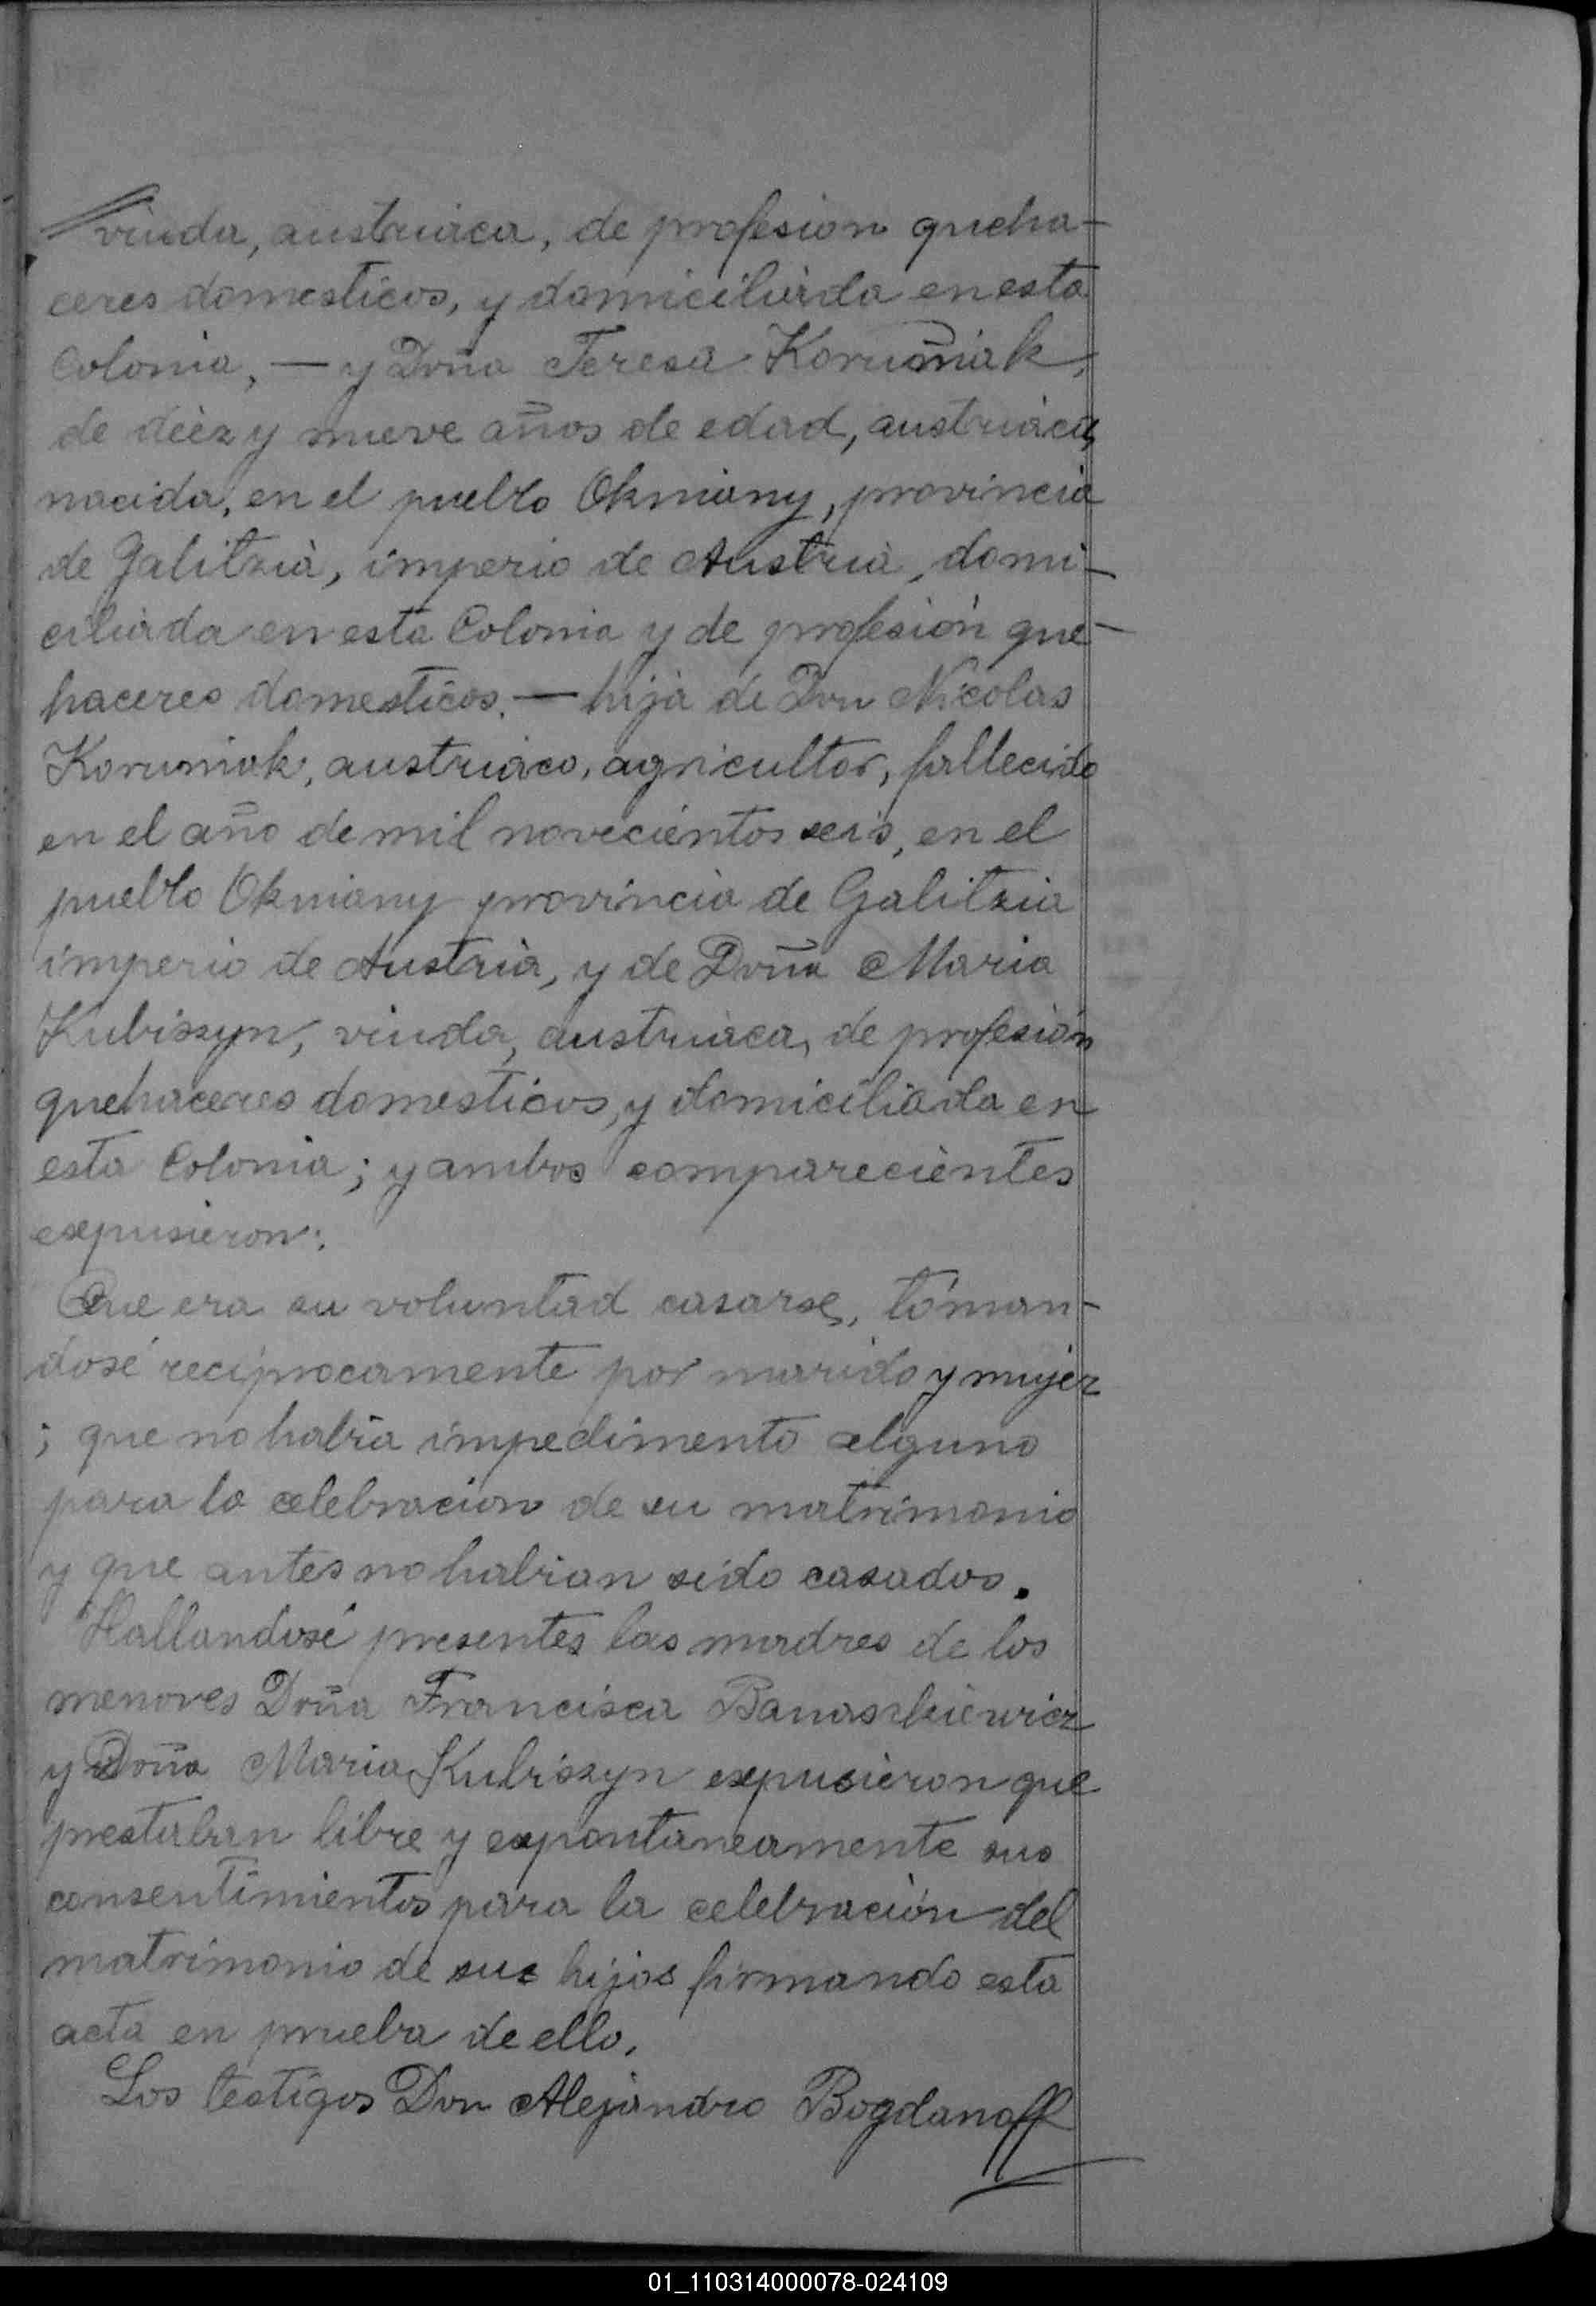 viuda, austriaca, de profesion queha-
ceres domesticos, y domiciliada en esta
Colonia, — y Doña Teresa Koruniak,
de diez y nueve años de edad, austriaca,
nacida, en el pueblo Okniany, provincia
de Galitzia, imperio de Austria, domi-
ciliada en esta Colonia y de profesión que-
haceres domesticos. — hija de Don Nicolas
Koruniak, austriaco, agricultor, fallecido
en el año de mil novecientos seis, en el
pueblo Okniany provincia de Galitzia
imperio de Austria, y de Doña Maria
Kubiszyn, viuda, austriaca, de profesión
quehaceres domesticos, y domiciliada en
esta Colonia; y ambos comparecientes
expusieron:
Que era su voluntad casarse, tóman-
dosé reciprocamente por marido y mujer
; que no habia impedimento alguno
para la celebracion de su matrimonio
y que antes no habian sido casados.
Hallandosé presentes las madres de los
menores Doña Francisca Banaszkiewicz
y Doña Maria Kubiszyn expusieron que
prestaban libre y expontaneamente sus
consentimientos para la celebración del
matrimonio de sus hijos firmando esta
acta en prueba de ello.
Los testigos Don Alejandro Bogdanoff
01_110314000078-024109